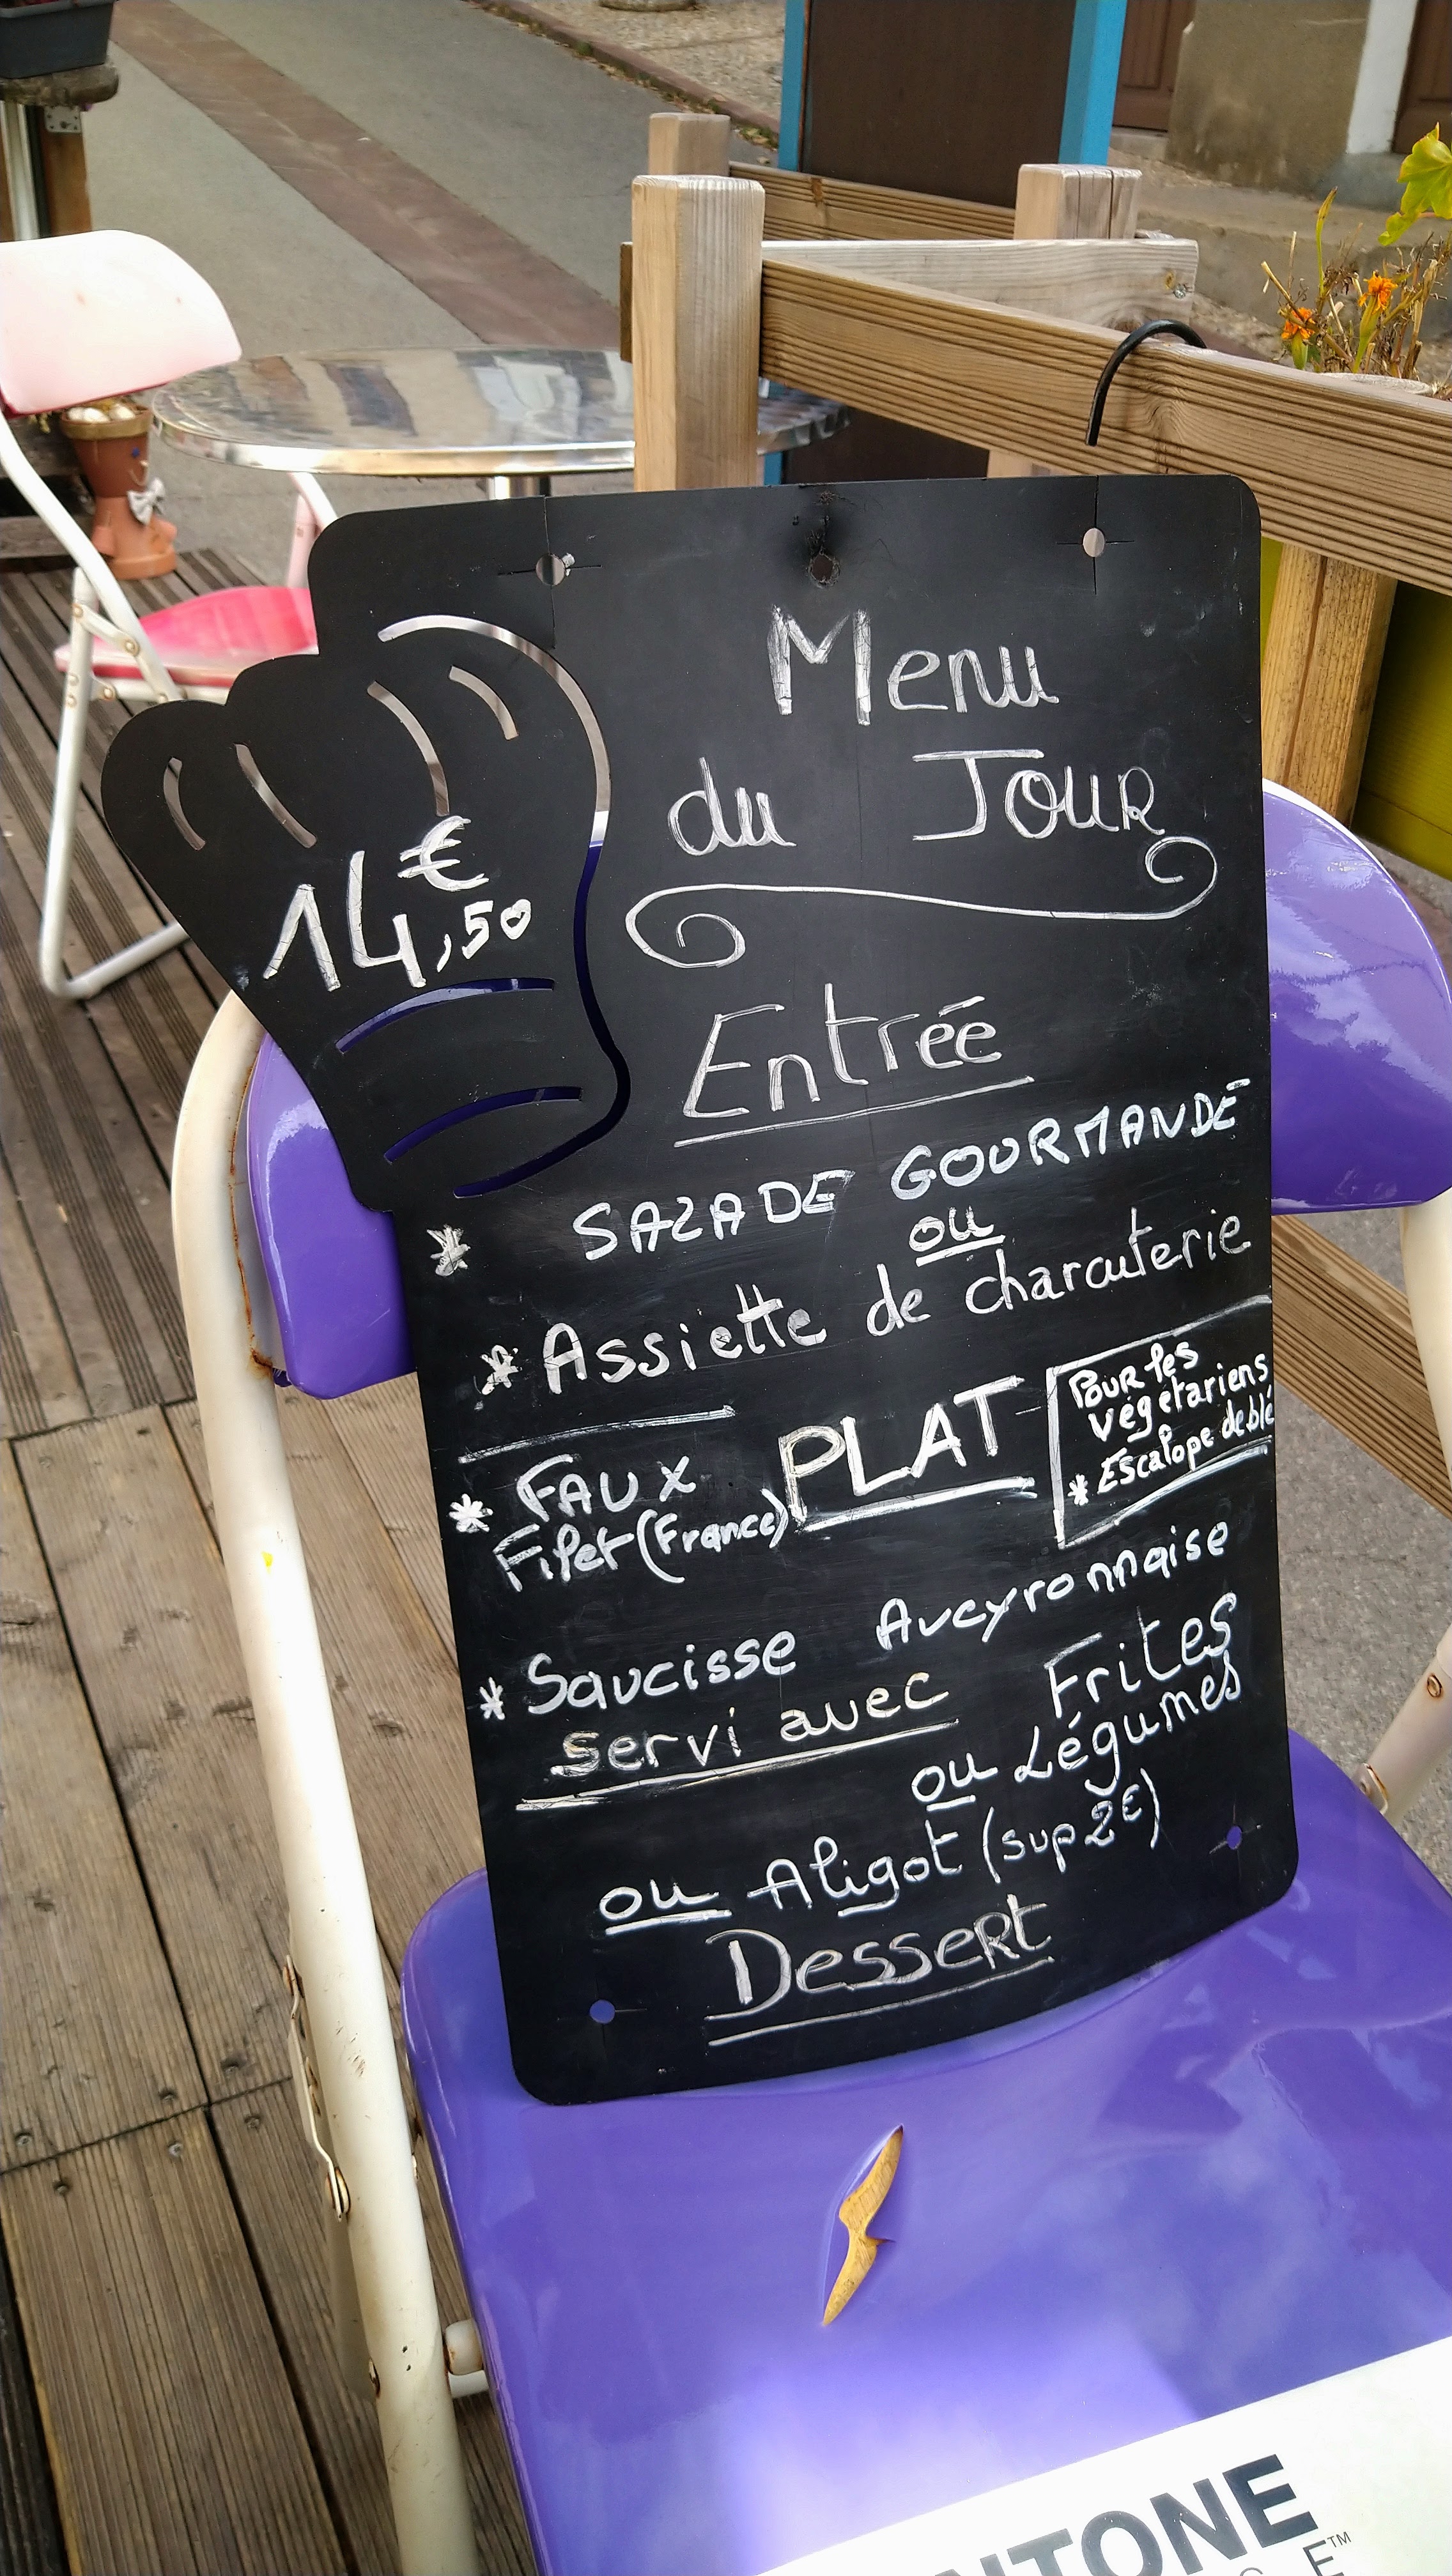 Menu
du Jour
14,50 €
Entrée
* SALADE GOURMANDE
ou
* Assiette de charcuterie
PLAT
Pour les
végétariens
* Escalope de blé
* FAUX
Filet (France)
* Saucisse Aveyronnaise
servi avec Frites
ou Légumes
ou Aligot (sup 2€)
Dessert